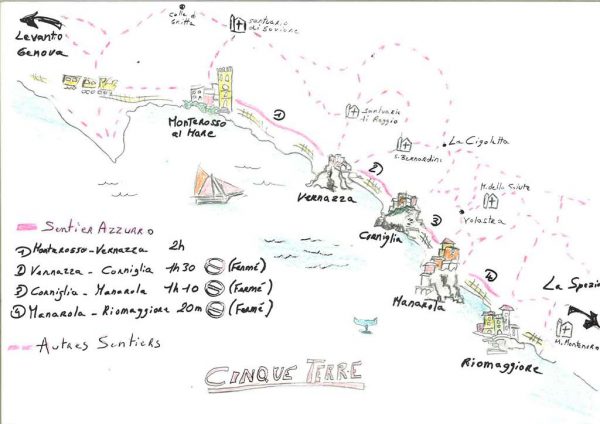 Levanto
Genova
Colle di
Gritta
Santuario
di Soviore
Monterosso
al Mare
①
Santuario
di Reggio
S. Bernardino
La Cigoletta
②
Vernazza
M. della Salute
Volastra
Corniglia
③
Manarola
④
La Spezia
M. Montenero
Riomaggiore
Sentier Azzurro
① Monterosso-Vernazza 2h
② Vernazza - Corniglia 1h30 (Fermé)
③ Corniglia - Manarola 1h10 (Fermé)
④ Manarola - Riomaggiore 20m (Fermé)
Autres Sentiers
Cinque Terre